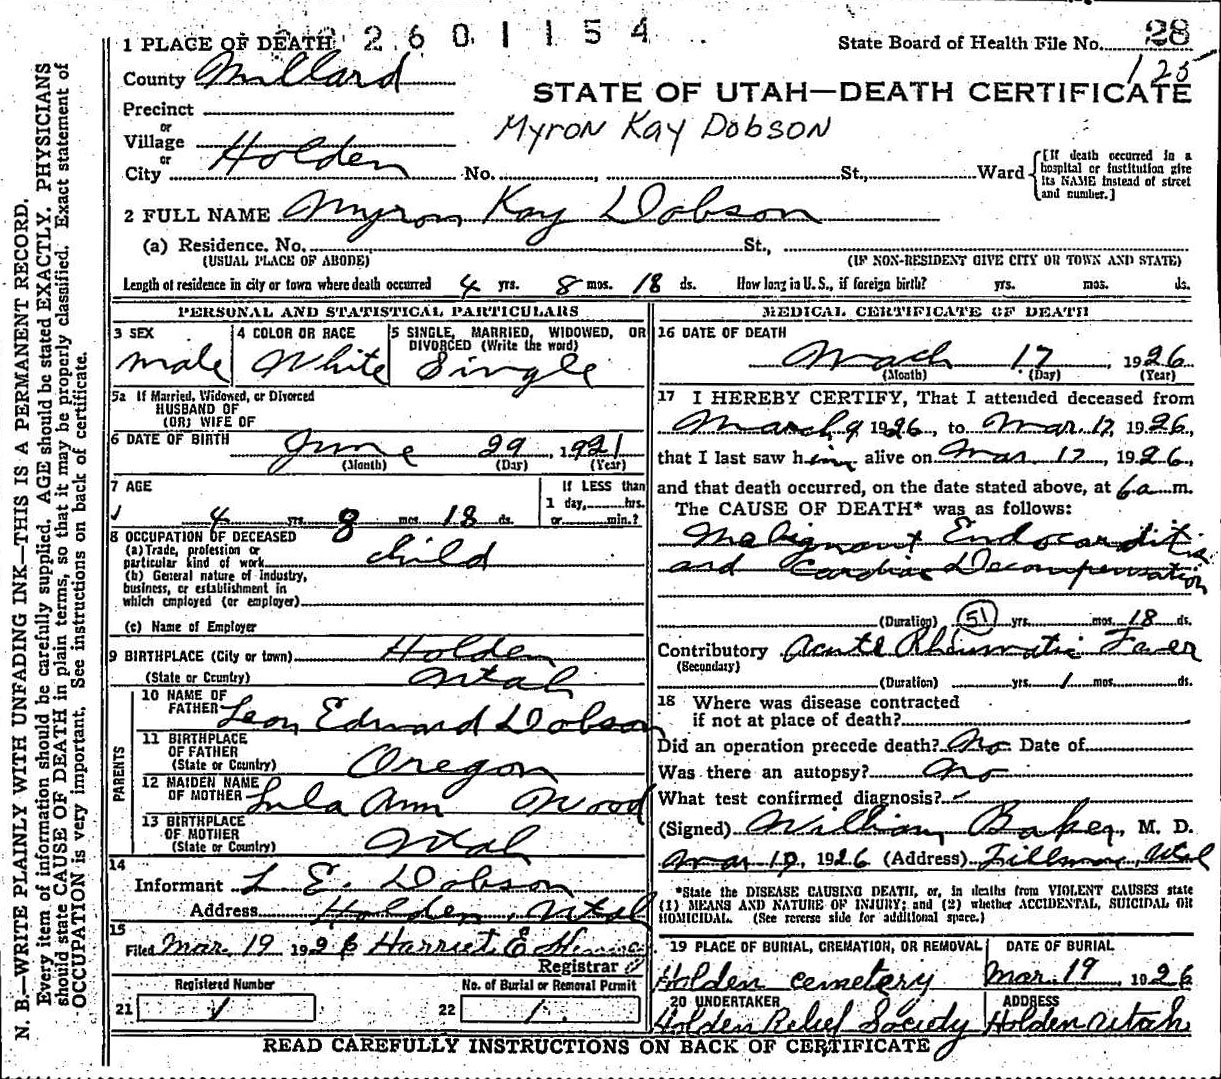 2601154
1 PLACE OF DEATH
State Board of Health File No. 28
125
County Millard
STATE OF UTAH—DEATH CERTIFICATE
Precinct
or
Village
Myron Kay Dobson
or
City Holden No. , St., Ward
[If death occurred in a
hospital or institution give
its NAME instead of street
and number.]
2 FULL NAME Myron Kay Dobson
(a) Residence. No. St.,
(USUAL PLACE OF ABODE) (IF NON-RESIDENT GIVE CITY OR TOWN AND STATE)
Length of residence in city or town where death occurred 4 yrs. 8 mos. 18 ds. How long in U. S., if foreign birth? yrs. mos. ds.
PERSONAL AND STATISTICAL PARTICULARS
3 SEX
male
4 COLOR OR RACE
White
5 SINGLE, MARRIED, WIDOWED, OR
DIVORCED (Write the word)
Single
5a If Married, Widowed, or Divorced
HUSBAND OF
(OR) WIFE OF
6 DATE OF BIRTH June 29, 1921
(Month) (Day) (Year)
7 AGE
4 yrs. 8 mos. 18 ds.
If LESS than
1 day, hrs.
or min.?
8 OCCUPATION OF DECEASED
(a) Trade, profession or
particular kind of work child
(b) General nature of industry,
business, or establishment in
which employed (or employer)
(c) Name of Employer
9 BIRTHPLACE (City or town) Holden
(State or Country) Utah
PARENTS
10 NAME OF
FATHER Leon Edward Dobson
11 BIRTHPLACE
OF FATHER
(State or Country) Oregon
12 MAIDEN NAME
OF MOTHER Lula Ann Wood
13 BIRTHPLACE
OF MOTHER
(State or Country) Utah
14
Informant L. E. Dobson
Address Holden, Utah
15
Filed Mar. 19 1926 Harriet E
Registrar
Registered Number
21 1
No. of Burial or Removal Permit
22 1.
MEDICAL CERTIFICATE OF DEATH
16 DATE OF DEATH
Mach 17 1926
(Month) (Day) (Year)
17 I HEREBY CERTIFY, That I attended deceased from
March 9 1926, to Mar. 17, 1926,
that I last saw him alive on Mar 17, 1926,
and that death occurred, on the date stated above, at 6 a m.
The CAUSE OF DEATH* was as follows:
Malignant Endocarditis
and Cardiac Decompensation
(Duration) 51 yrs. mos. 18 ds.
Contributory Acute Rheumatic Fever
(Secondary)
(Duration) yrs. 1 mos. ds.
18 Where was disease contracted
if not at place of death?
Did an operation precede death? No Date of
Was there an autopsy? no
What test confirmed diagnosis?
(Signed) William Baker, M. D.
Mar 19, 1926 (Address) Fillmore, Utah
*State the DISEASE CAUSING DEATH, or, in deaths from VIOLENT CAUSES state
(1) MEANS AND NATURE OF INJURY; and (2) whether ACCIDENTAL, SUICIDAL OR
HOMICIDAL. (See reverse side for additional space.)
19 PLACE OF BURIAL, CREMATION, OR REMOVAL
Holden cemetery
DATE OF BURIAL
Mar. 19 1926
20 UNDERTAKER
Holden Relief Society
ADDRESS
Holden Utah
READ CAREFULLY INSTRUCTIONS ON BACK OF CERTIFICATE
N. B.—WRITE PLAINLY WITH UNFADING INK—THIS IS A PERMANENT RECORD.
Every item of information should be carefully supplied. AGE should be stated EXACTLY. PHYSICIANS
should state CAUSE OF DEATH in plain terms, so that it may be properly classified. Exact statement of
OCCUPATION is very important. See instructions on back of certificate.